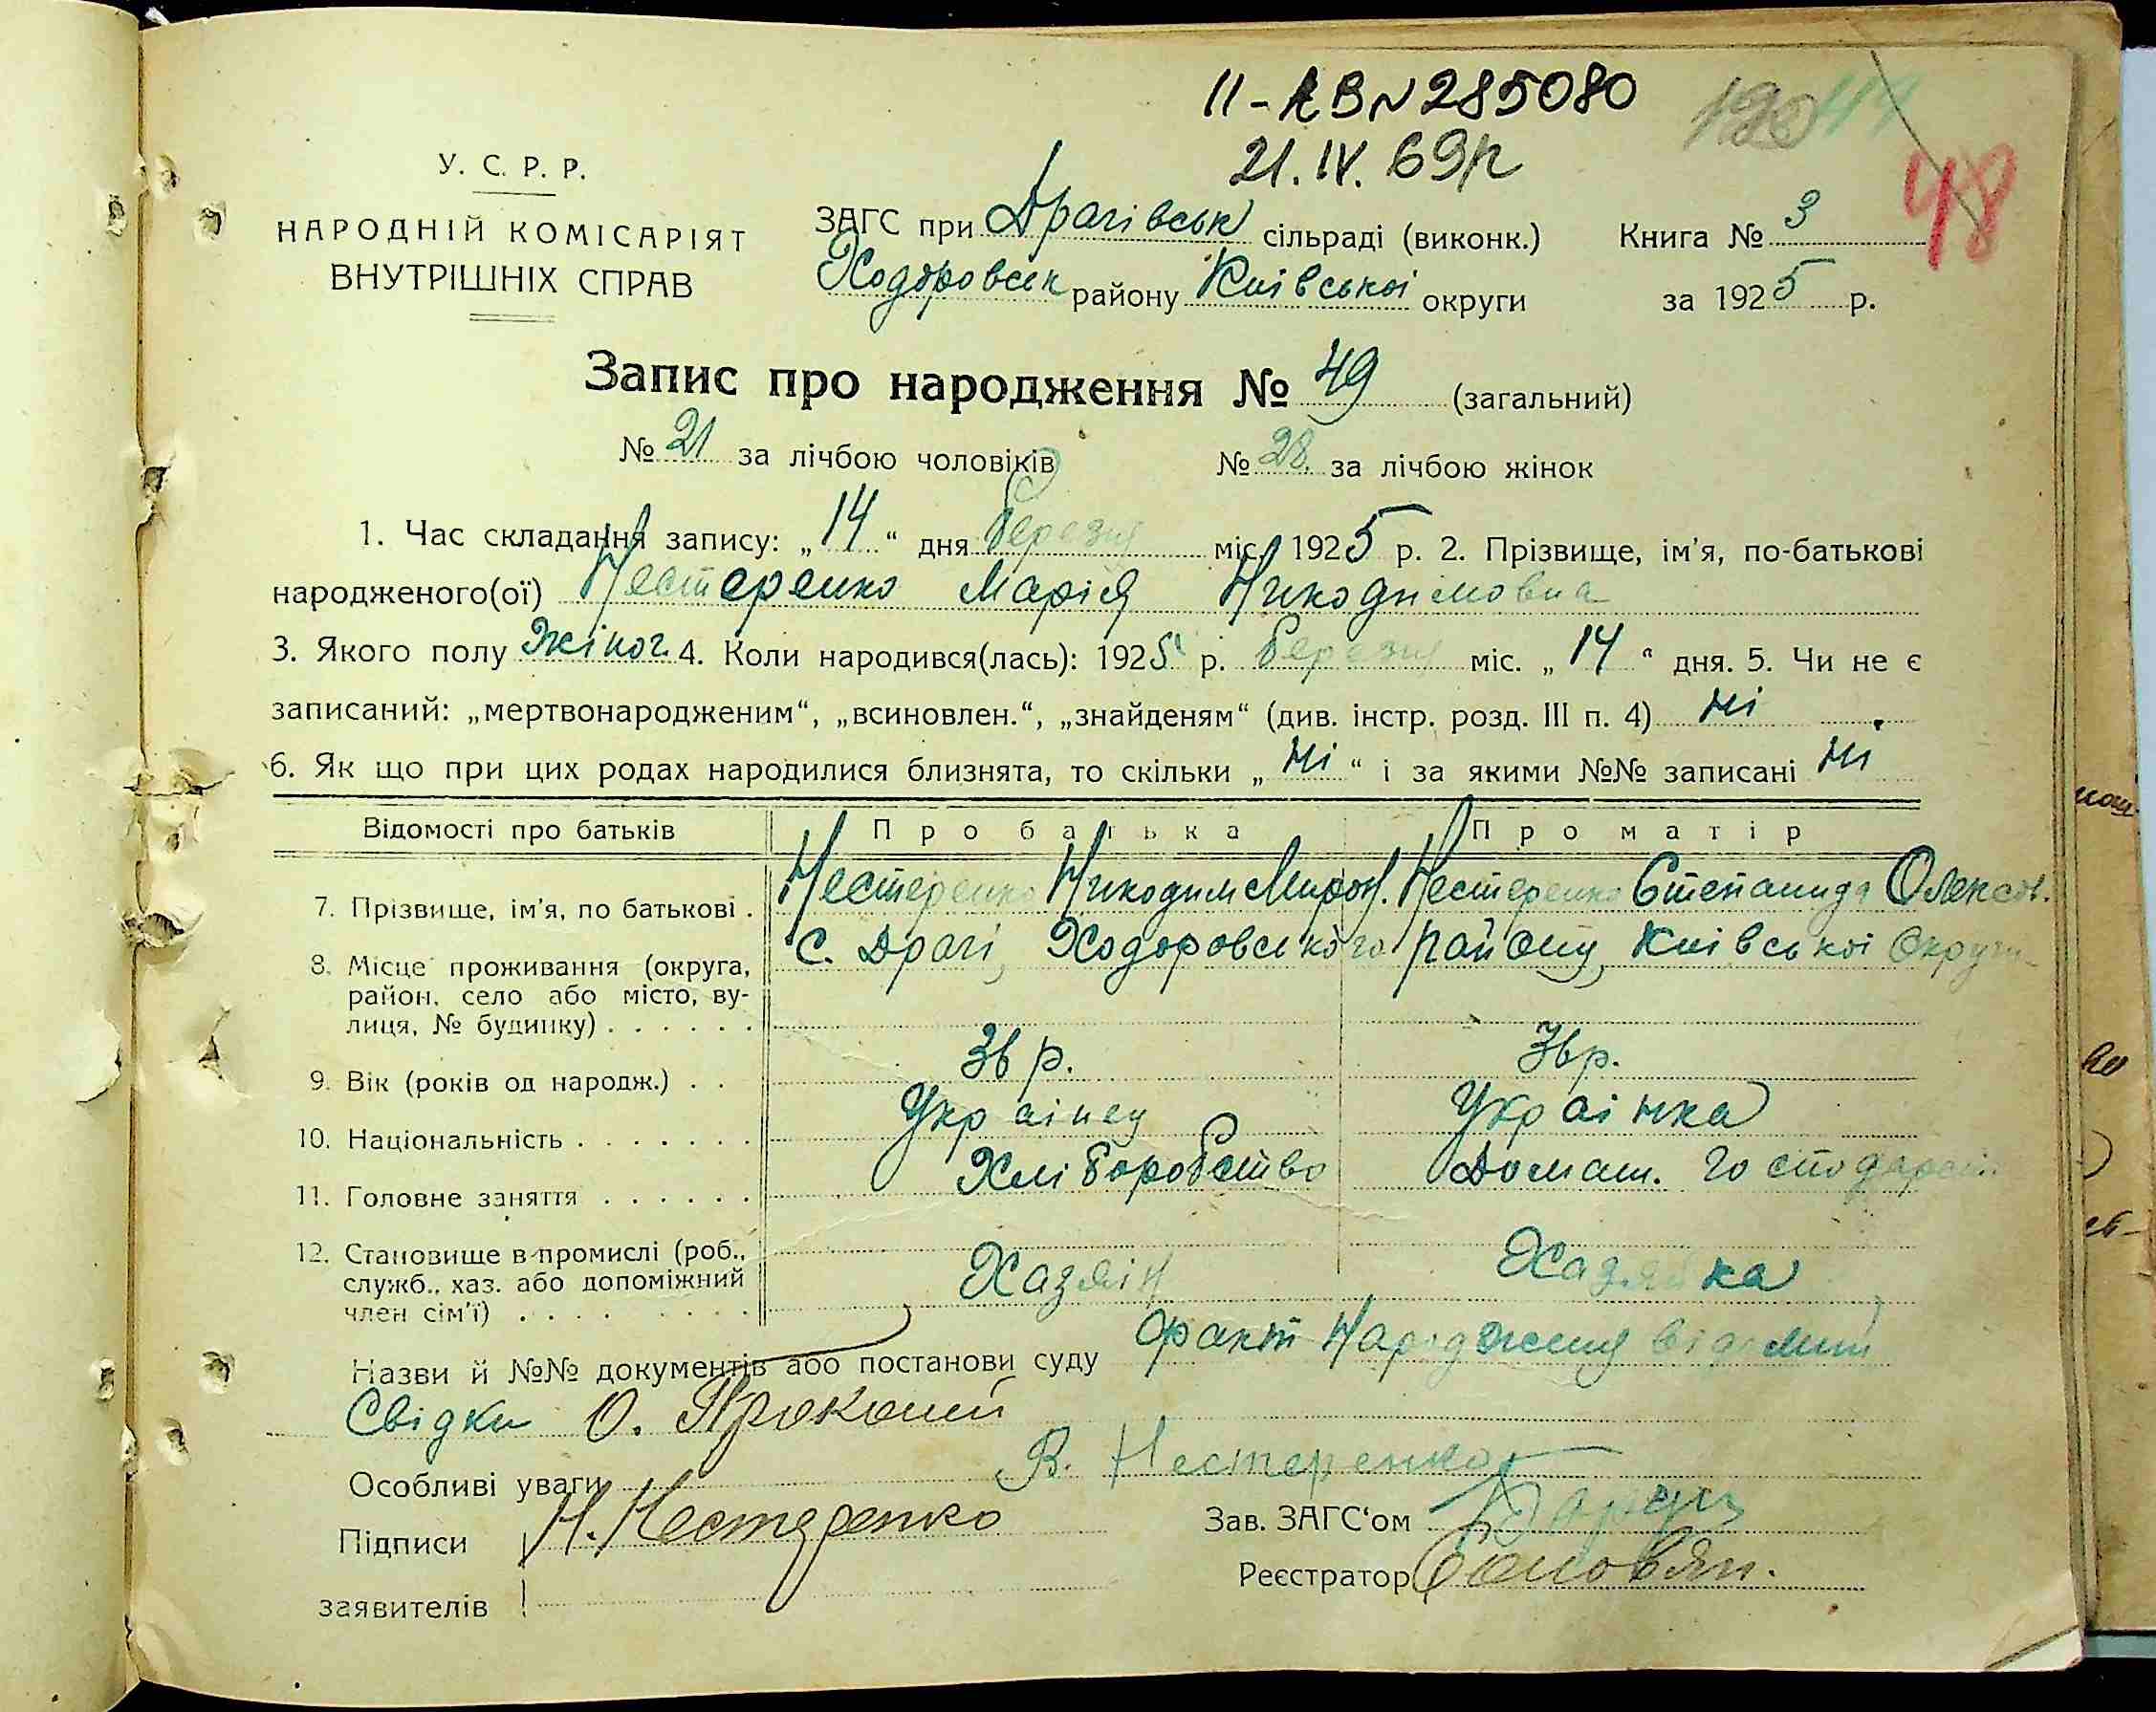 ІІ-АВ № 285080
21.IV.69р
48
У. С. Р. Р.
НАРОДНІЙ КОМІСАРІЯТ
ВНУТРІШНІХ СПРАВ
ЗАГС при Драгівськ сільраді (виконк.) Книга № 3
Ходоровськ району Київської округи за 1925 р.
Запис про народження № 49 (загальний)
№ 21 за лічбою чоловіків № 28. за лічбою жінок
1. Час складання запису: „14“ дня березня міс. 1925 р. 2. Прізвище, ім'я, по-батькові
народженого(ої) Нестеренко Марія Никодимовна
3. Якого полу Жіноч. 4. Коли народився(лась): 1925 р. березня міс. „14“ дня. 5. Чи не є
записаний: „мертвонародженим“, „всиновлен.“, „знайденям“ (див. інстр. розд. III п. 4) ні
6. Як що при цих родах народилися близнята, то скільки „ні“ і за якими №№ записані ні
Відомості про батьків Про батька Про матір
7. Прізвище, ім'я, по батькові . Нестеренко Никодим Мирон. Нестеренко Степанида Олексов.
8. Місце проживання (округа, с. Драгі, Ходоровського району, Київської Округи
район, село або місто, ву-
лиця, № будинку) . . . . . .
9. Вік (років од народж.) . . 36 р. 36р.
10. Національність . . . . . . . Українец Українка
11. Головне заняття . . . . . . Хліборобство Домаш. господарст.
12. Становище в промислі (роб.,
служб., хаз. або допоміжний Хазяїн Хазяйка
член сім'ї) . . . . . . . . .
Назви й №№ документів або постанови суду факт Народження відомий
Свідки О. Прокопий
В. Нестеренко
Особливі уваги
Підписи Н. Нестеренко Зав. ЗАГС‘ом
Реєстратор
заявителів